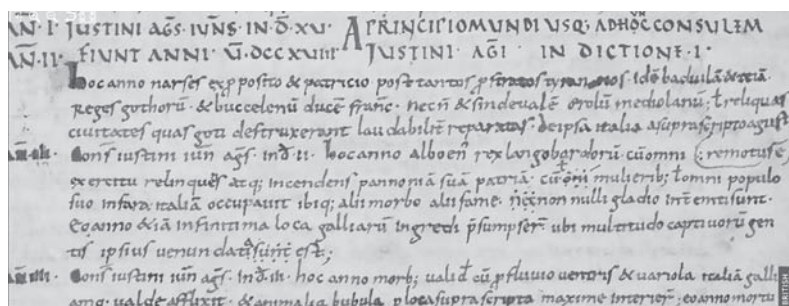 AN̄·I· JUSTINI AG̅S· IUN̄S· IN·D̄·XV· A PRINCIPIO MUNDI USQ; AD HOC CONSULEM
AN̄·II· FIUNT ANNI· V̄·DCCXVIII· JUSTINI· AG̅I· IN DICTIONE·I·
hoc anno narses ex p̱posito & patricio post tantos p̱stratos tyrannos· idē baduilā & teiā
Reges gothorū· & buccelenū ducē franc̄· necn̄ & sindevalē erolū mediolanū; ł reliquas
civitates quas goti destruxerant laudabilit̄ reparatas· de ipsa italia a suprascripto agust
AN̄·III· Cons̄ iustini iūn ag̅s· ind̄·II· hoc anno alboen̄ rex langobardorū· cū omni (; remotus ē
exercitu relinquēs atq; incendens pannoniā suā patriā· cū omī mulierib; ł omni populo
suo in fara italiā occupavit ibiq; alii morbo alii fame· necnon nulli gladio int̄empti sunt·
Eo anno & iā in finitima loca galliarū ingredi p̄sumpser̄ ubi multitudo captivorū gen
tis ipsius venundati sunt est;
AN̄·IIII· Cons̄ iustini iūn ag̅s· ind̄·III· hoc anno morb; valid' cū p̱fluvio ventris & variola italiā galli
amq· valde afflixit· & animalia bubula p̱ loca suprascripta maxime interier̄; eo anno mortu
BRITISH